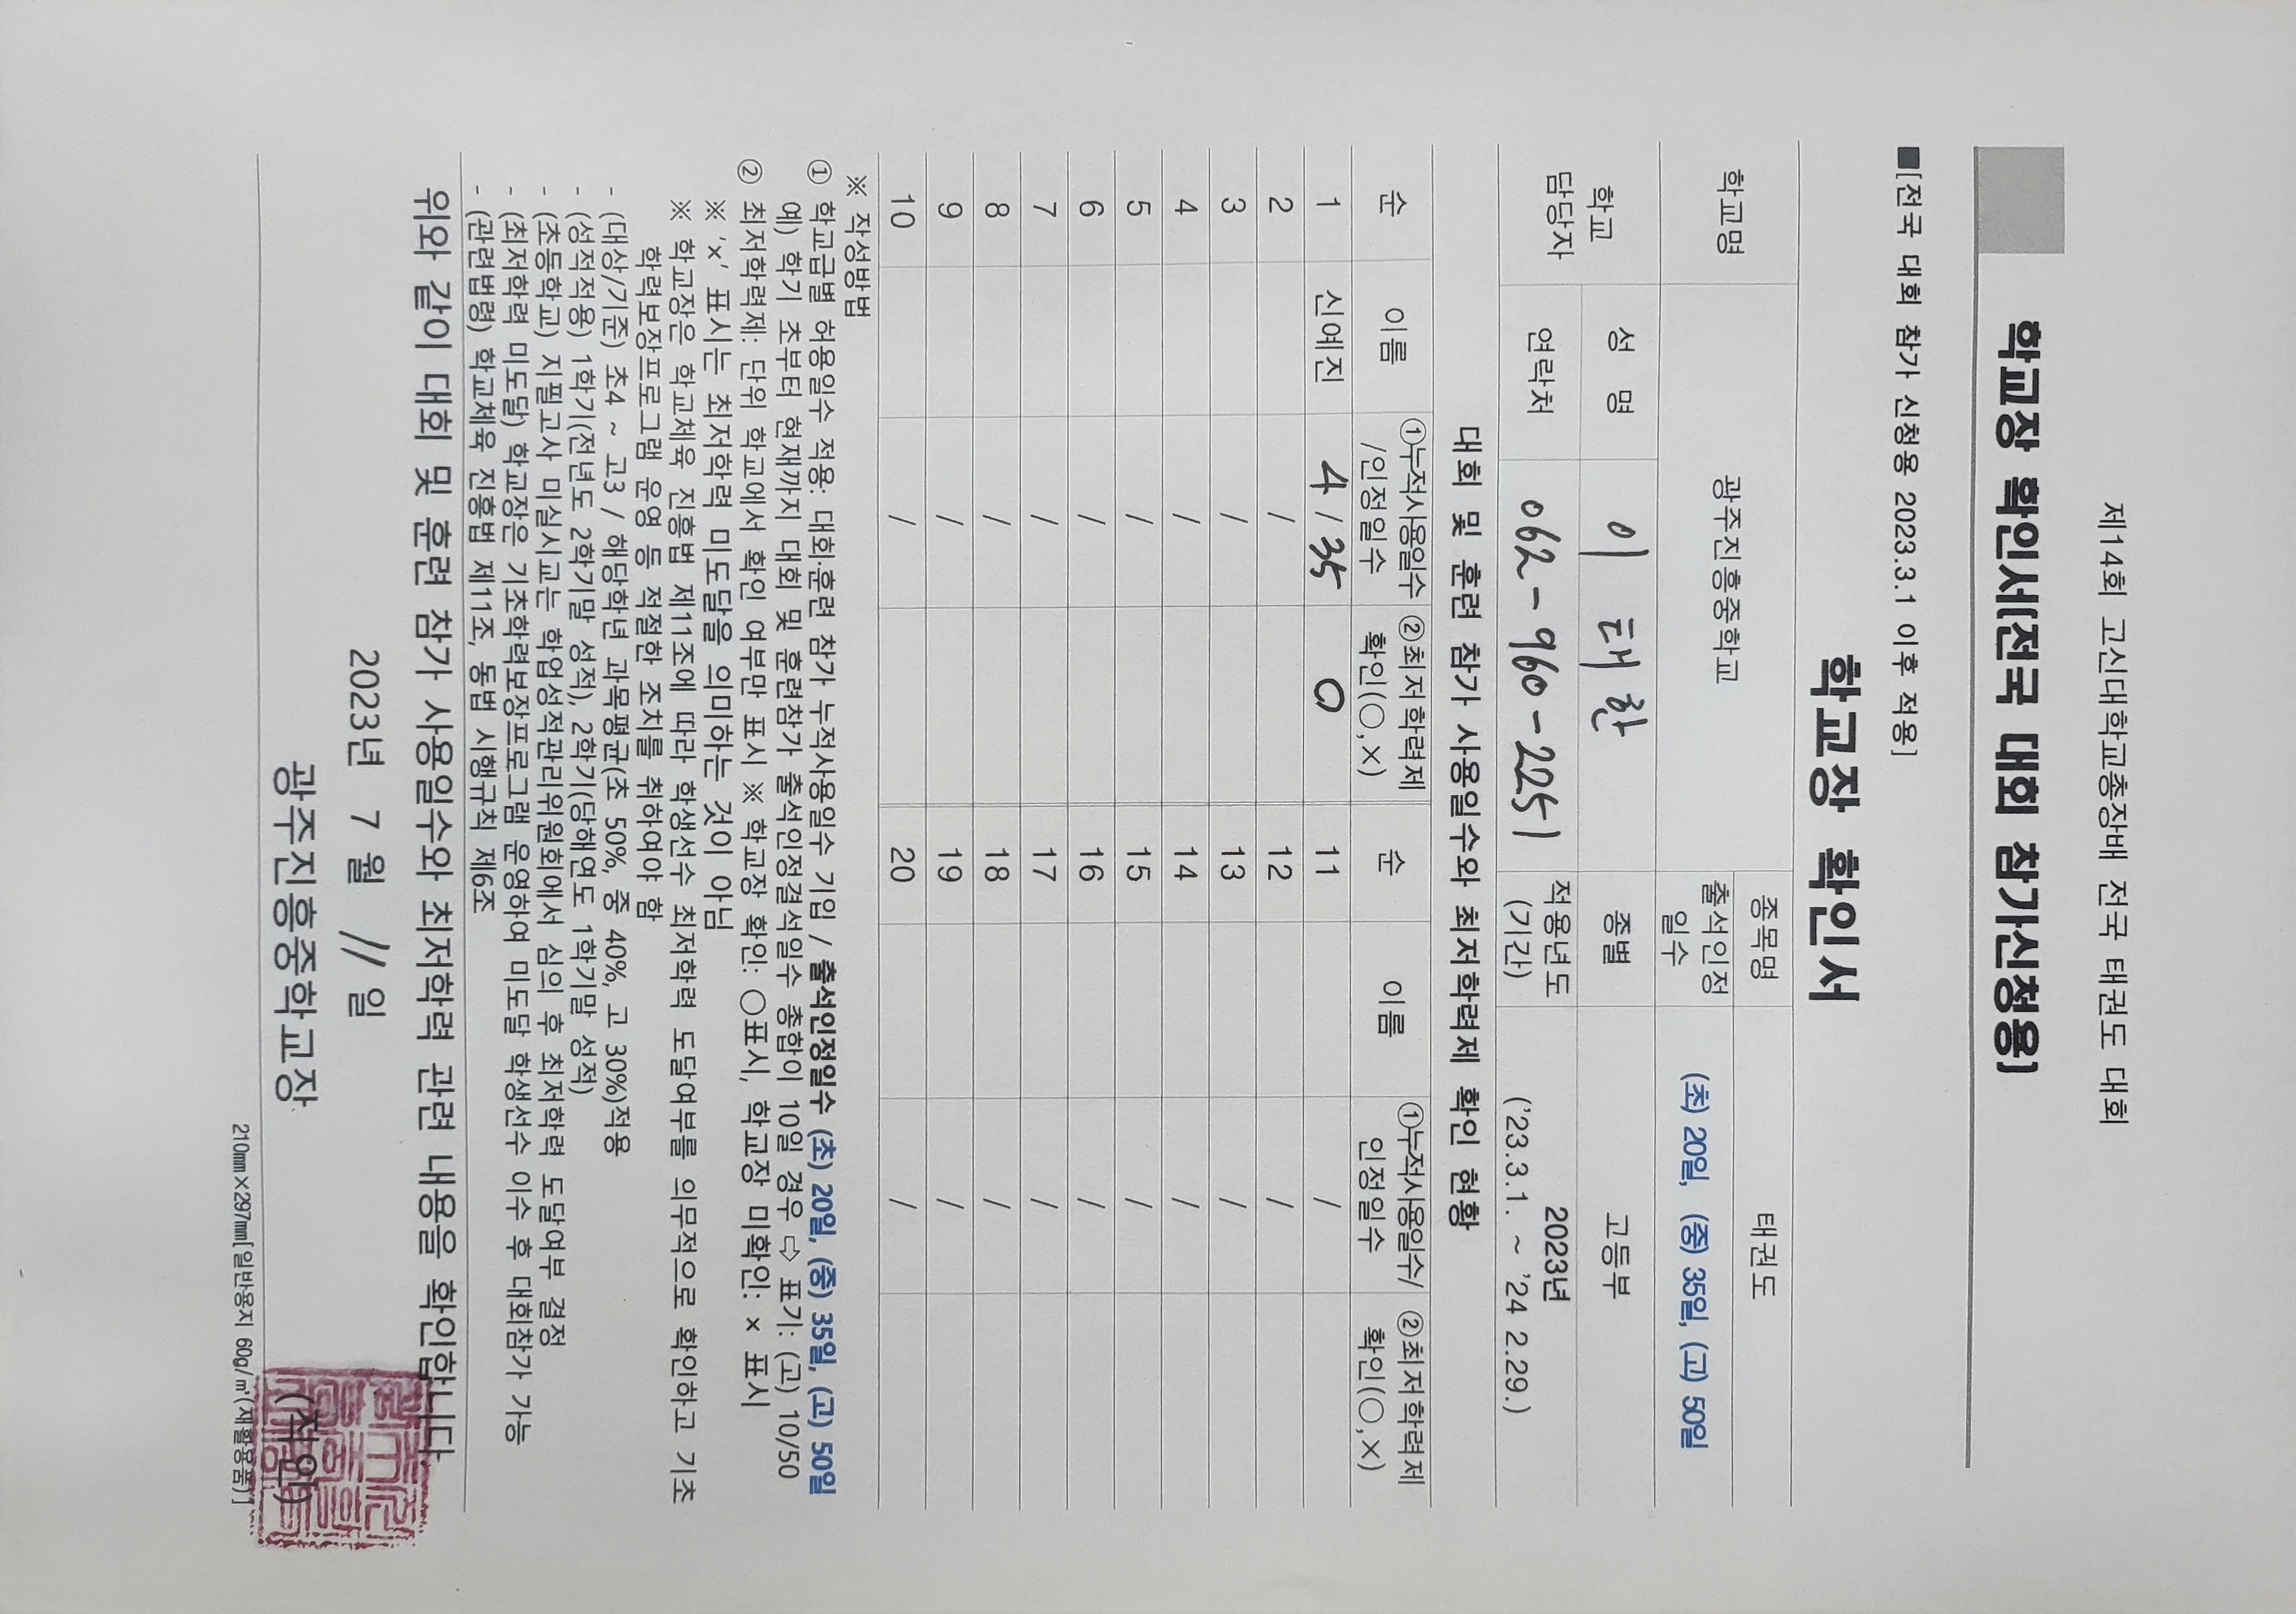 제14회 고신대학교총장배 전국 태권도 대회
학교장 확인서[전국 대회 참가신청용]
■[전국 대회 참가 신청용 2023.3.1 이후 적용]
학교장 확인서
학교명 광주진흥중학교 종목명 태권도
출석인정일수 (초) 20일, (중) 35일, (고) 50일
학교 담당자 성 명 이 태 한 종별 고등부
연락처 062-960-2251 적용년도 (기간) 2023년 ('23.3.1. ~ '24 2.29.)
대회 및 훈련 참가 사용일수와 최저학력제 확인 현황
순 이름 ①누적사용일수/인정일수 ②최저학력제 확인(○,×) 순 이름 ①누적사용일수/인정일수 ②최저학력제 확인(○,×)
1 신예진 4 / 35 O 11 /
2 / 12 /
3 / 13 /
4 / 14 /
5 / 15 /
6 / 16 /
7 / 17 /
8 / 18 /
9 / 19 /
10 / 20 /
※ 작성방법
① 학교급별 허용일수 적용: 대회.훈련 참가 누적사용일수 기입 / 출석인정일수 (초) 20일, (중) 35일, (고) 50일
예) 학기 초부터 현재까지 대회 및 훈련참가 출석인정결석일수 총합이 10일 경우 ⇨ 표기: (고) 10/50
② 최저학력제: 단위 학교에서 확인 여부만 표시 ※ 학교장 확인: ○표시, 학교장 미확인: × 표시
※ 'x' 표시는 최저학력 미도달을 의미하는 것이 아님
※ 학교장은 학교체육 진흥법 제11조에 따라 학생선수 최저학력 도달여부를 의무적으로 확인하고 기초
학력보장프로그램 운영 등 적절한 조치를 취하여야 함
- (대상/기준) 초4 ~ 고3 / 해당학년 과목평균(초 50%, 중 40%, 고 30%)적용
- (성적적용) 1학기(전년도 2학기말 성적), 2학기(당해연도 1학기말 성적)
- (초등학교) 지필고사 미실시교는 학업성적관리위원회에서 심의 후 최저학력 도달여부 결정
- (최저학력 미도달) 학교장은 기초학력보장프로그램 운영하여 미도달 학생선수 이수 후 대회참가 가능
- (관련법령) 학교체육 진흥법 제11조, 동법 시행규칙 제6조
위와 같이 대회 및 훈련 참가 사용일수와 최저학력 관련 내용을 확인합니다.
2023년 7 월 11 일
광주진흥중학교장 (직인)
210㎜×297㎜[일반용지 60g/㎡(재활용품)]